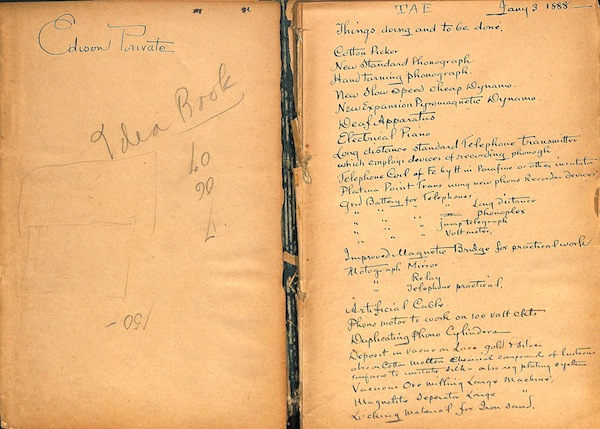 Edison Private
Idea Book
150 -
TAE Jany 3 1888
Things doing and to be done,
Cotton Picker
New Standard Phonograph
Hand turning phonograph.
New Slow speed cheap Dynamo.
New Expansion Pyromagnetic Dynamo.
Deaf Apparatus
Electrical Piano
Long distance standard Telephone Transmitter
which employs devices of recording phonogh
Telephone Coil of Fe by tt in Parafine or other insulator
Platina Point Trans using new phono Recorder devices
Grd Battery for Telephones,
" " " " Long distance
" " " " Phonoplex
" " " " Jump telegraph
" " " " Voltmeter,
Improved Magnetic Bridge for practical work
Motograph Mirror
" Relay
" Telephone practical,
Artificial Cable
Phono motor to work on 100 volt ckts
Duplicating Phono Cylinders
Deposit in vacuo on Lace, gold & silver
also on Cotton molten chemical compound of lustrous
surfaces to imitate silk - also reg plating system
Vacuous Ore milling Large Machine,
Magnetic Seperator Large "
Locking Material for Iron sand,